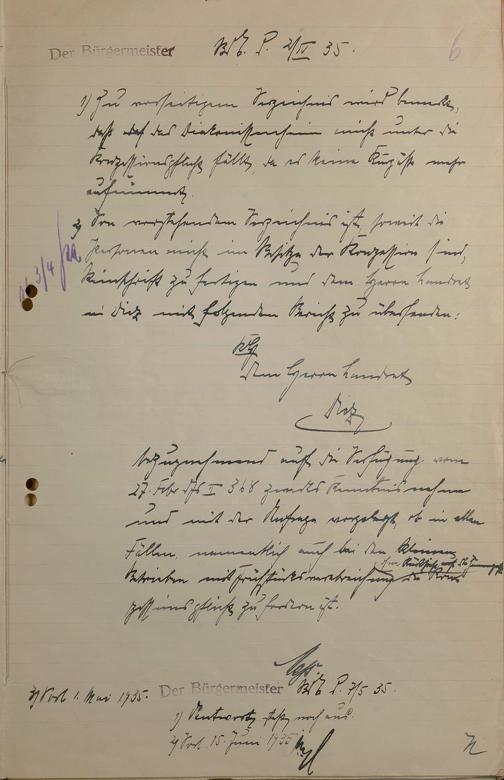 6
Der Bürgermeister
1) Zu vorseitigem Verzeichnis wird bemerkt,
daß das Diakonissenheim nicht unter die
Konzessionspflicht fällt, da es keine Kurgäste mehr
aufnimmt.
2) Von vorstehendem Verzeichnis ist, soweit die
Personen nicht im Besitze der Konzession sind,
zu fertigen und dem Herrn Landrat
in Diez mit folgendem Bericht zu übersenden:
Dem Herrn Landrat
Diez
Bezugnehmend auf die Verfügung vom
27. Febr. II 348 Kenntnisnahme
und mit der Anfrage vorgelegt, ob in allen
Fällen, namentlich auch bei den kleinen
Betrieben mit Frühstücksverabreichung die Konzes-
sionspflicht zu fordern ist.
3) Vorl. 1. Mai 1935.
Der Bürgermeister
1) Antwort steht noch aus.
2) Vorl. 15. Juni 1935